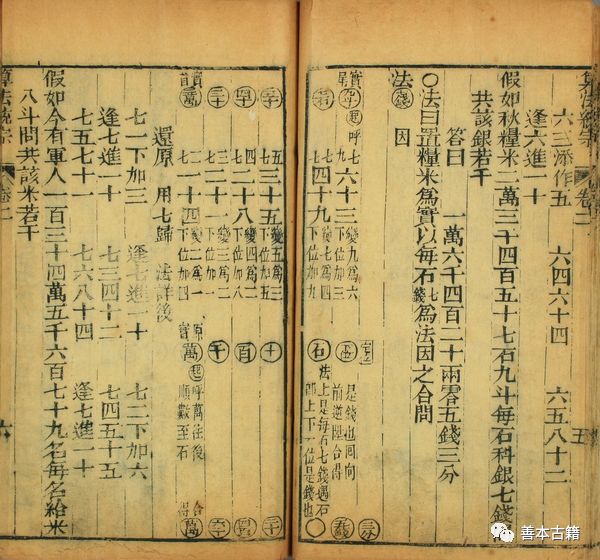 算法統宗 卷二 五
六三添作五 六四六十四 六五八十二
逢六進一十
假如秋糧米二萬三千四百五十七石九斗每石科銀七錢問
共該銀若干
答曰 一萬六千四百二十兩零五錢三分
〇法曰置糧米爲實以每石七錢爲法因之合問
法 因
起呼 七九 六十三 變九爲六下位加三
是錢也回向
七七 四十九 變七爲四下位加九 石
法上是每石七錢遇石
即上下一位是錢也
五七 三十五 變五爲三下位加五 十
四七 二十八 變四爲二下位加八 百
三七 二十一 變三爲二下位加一 千
二七 一十四 變二爲一下位加四 萬
呼萬住後
順數至石
還原 用七歸 法詳後
七一下加三 逢七進一十 七二下加六
逢七進一十 七三四十二 七四五十五
七五七十一 七六八十四 逢七進一十
假如今有軍人一百三十四萬五千六百七十九名每名給米
八斗問共該米若干
算法統宗 卷二 六
善本古籍